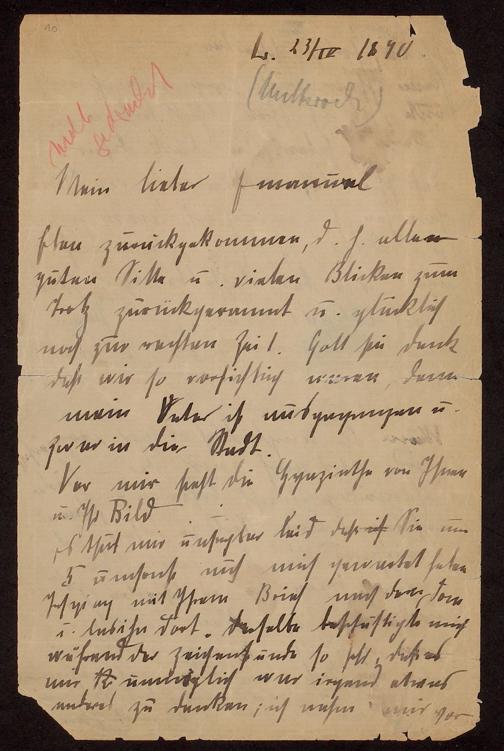 L. 23/IV 1890.
(Mittwoch)
nicht
gedruckt
Mein lieber Emanuel
Eben zurückgekommen, d. h. allen
guten Sitte u. vielen Blicken zum
Trotz zurückgerannt u. glücklich
noch zur rechten Zeit. Gott sei dank
daß wir so vorsichtig waren, denn
mein Vater ist ausgegangen u.
zwar in die Stadt.
Vor mir steht die Hyazinthe von Ihnen
u. Ihr Bild
Es thut mir unsagbar leid daß Sie um
5 umsonst auf mich gewartet haben
Ich ging mit Ihrem Brief nach dem Dom
u. las ihn dort. Derselbe beschäftigte mich
während der Zeichenstunde so sehr, daß es
mir unmöglich war irgend etwas
anderes zu denken; ich nahm mir vor